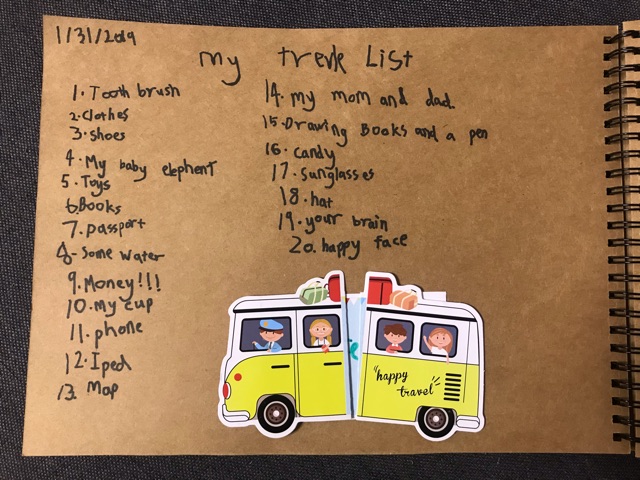 1/31/2019
my trevle List
1. Tooth brush
2. Clothes
3. Shoes
4. My baby elephent
5. Toys
6. Books
7. passport
8. Some water
9. Money!!!
10. my cup
11. phone
12. Iped
13. Map
14. my mom and dad
15. Drawing Books and a pen
16. candy
17. sunglasses
18. hat
19. your brain
20. happy face
"happy
travel"